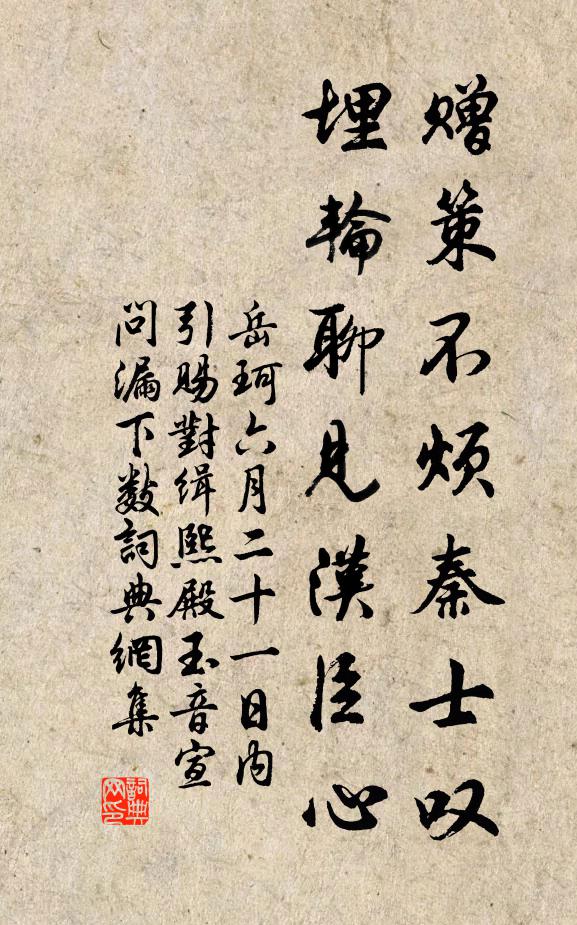 赠策不烦秦士叹
埋輪聊見漢臣心
岳珂六月二十一日内
引賜對緝熙殿玉音宣
問漏下数詞典網集
詞典
网印